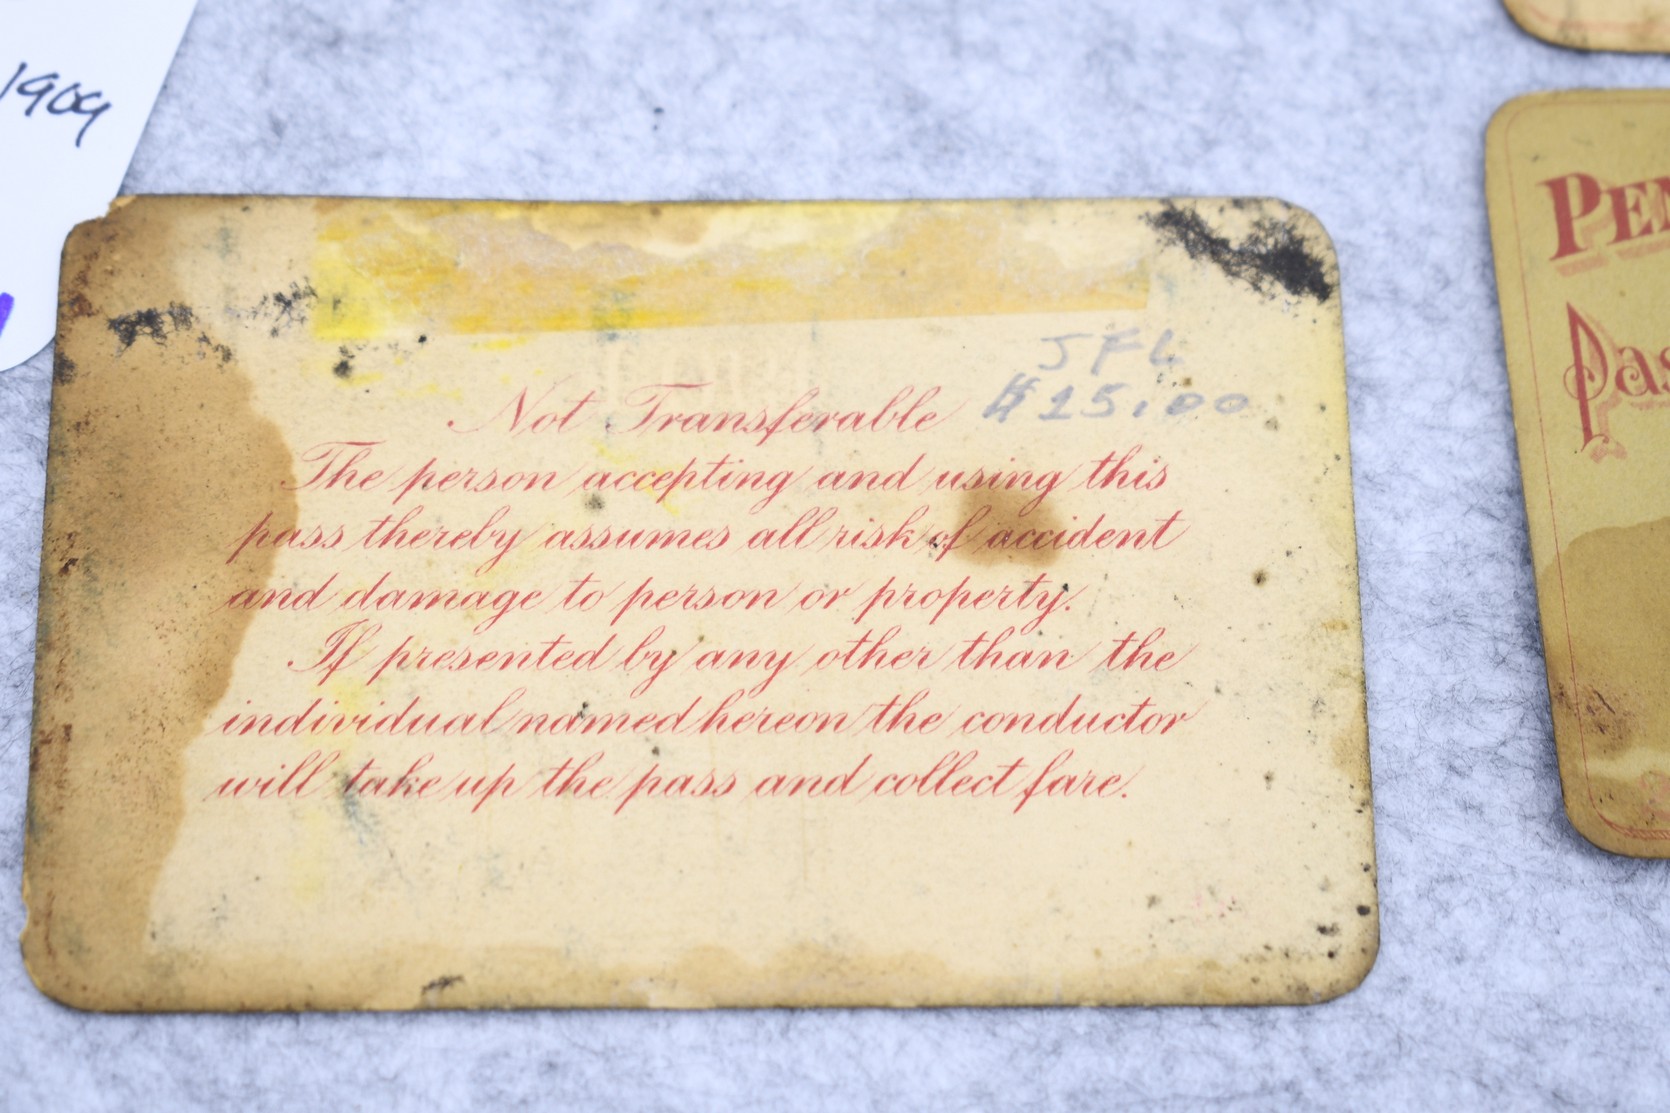 1909
JFL
$15.00
Not Transferable
The person accepting and using this
pass thereby assumes all risk of accident
and damage to person or property.
If presented by any other than the
individual named hereon the conductor
will take up the pass and collect fare.
PEN
Pas